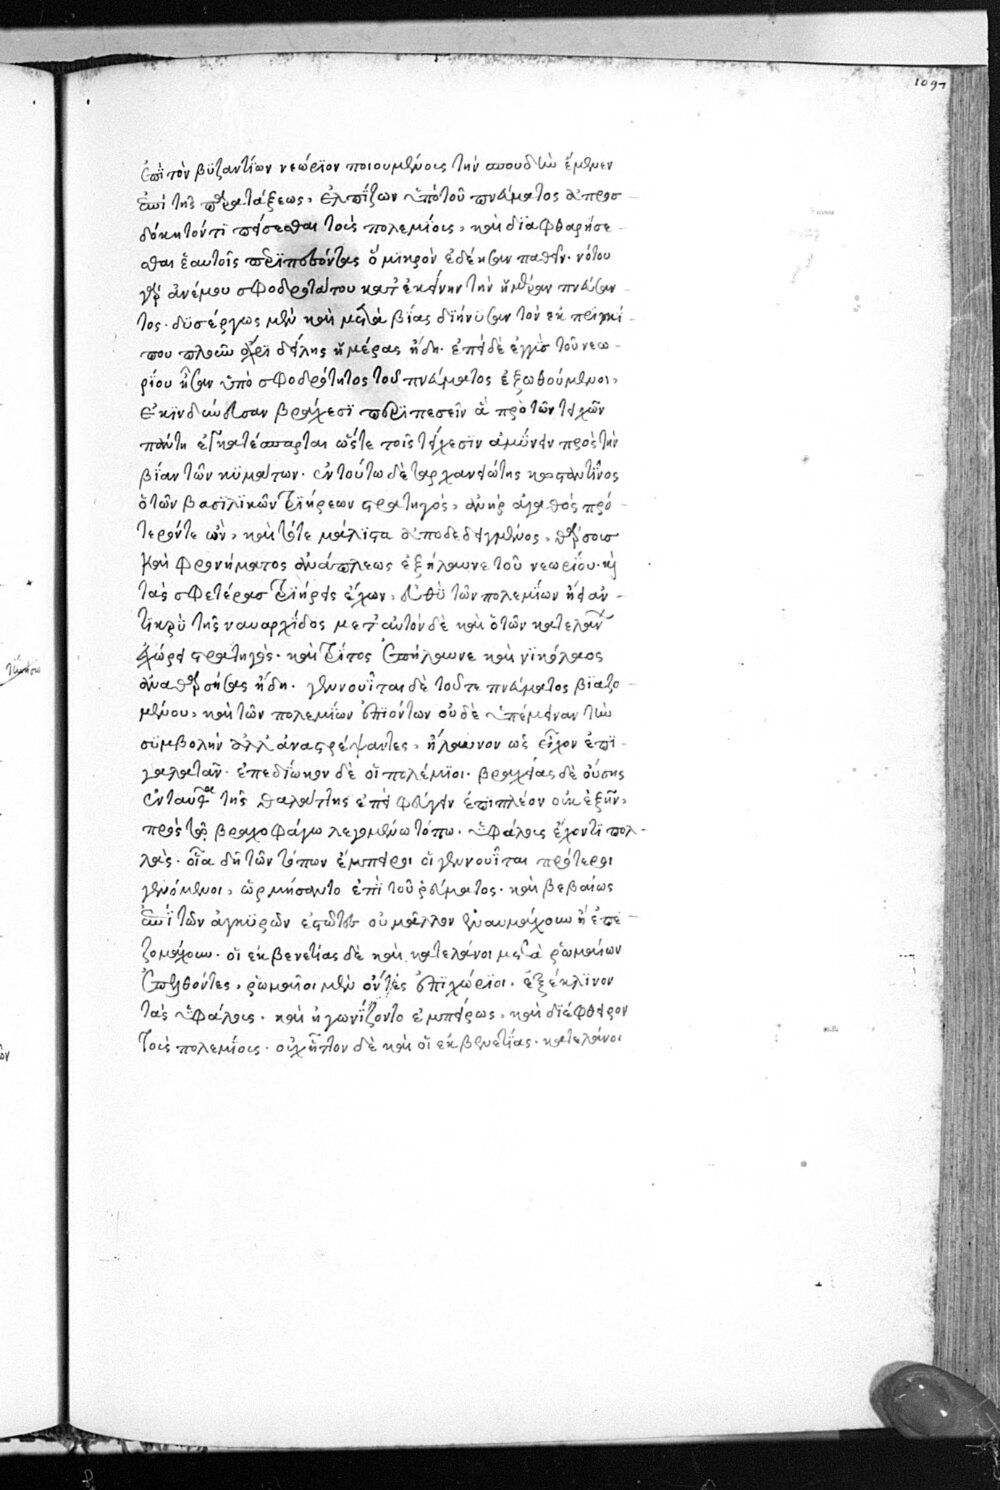 1097
ἐπὶ τὸν βυζαντίων νεώριον ποιουμένοις τὴν σπουδὴν ἔμενεν
ἐπὶ τῆς παρατάξεως, ἐλπίζων ὑπὸ τοῦ πνεύματος ἀπροσ-
δόκητόν τι πείσεσθαι τοὺς πολεμίους, καὶ διαφθαρήσε-
σθαι ἑαυτοῖς περιπεσόντας ὃ μικρὸν ἐδέησαν παθεῖν. νότου
γὰρ ἀνέμου σφοδροτάτου κατ' ἐκείνην τὴν ἡμέραν πνεύσαν-
τος. δυσέργως μὲν καὶ μετὰ βίας διήνυσαν τὸν ἐκ πριγκί-
που πλοῦν ἄχρι δείλης ἡμέρας ἤδη. ἐπεὶ δὲ ἐγγὺς τοῦ νεω-
ρίου ἦσαν ὑπὸ σφοδρότητος τοῦ πνεύματος ἐξωθούμενοι,
ἐκινδύνευσαν βράχεσι περιπεσεῖν ἃ πρὸ τῶν τειχῶν
πάντη ἐγκατέσπαρται ὥστε τοῖς τείχεσιν ἀμύνειν πρὸς τὴν
βίαν τῶν κυμάτων. ἐν τούτω δὲ ταρχανειώτης κωνσταντῖνος
ὁ τῶν βασιλικῶν τριήρεων στρατηγὸς, ἀνὴρ ἀγαθός πρό-
τερόν τε ὢν, καὶ τότε μάλιστα ἀποδεδειγμένος, θάρσους
καὶ φρονήματος ἀνάπλεως ἐξήλαυνε τοῦ νεωρίου. καὶ
τὰς σφετέρας τριήρεις ἔχων, εὐθὺ τῶν πολεμίων ἤει ἀν-
τικρὺ τῆς ναυαρχίδος μετ' αὐτὸν δὲ καὶ ὁ τῶν κατελάνων
στρατηγὸς. καὶ τρίτος ἐπήλαυνε καὶ νικόλαος
ἀναθαρσήσας ἤδη. γεννουῖται δὲ τοῦ τε πνεύματος βιαζο-
μένου, καὶ τῶν πολεμίων ἐπιόντων οὐδὲ ὑπέμειναν τὴν
συμβολὴν ἀλλ' ἀναστρέψαντες, ἤλαυνον ὡς εἶχον ἐπὶ
γαλατᾶν. ἐπεδίωκον δὲ οἱ πολέμιοι. βραχείας δὲ οὔσης
ἐνταῦθα τῆς θαλάττης ἐπεὶ φεύγειν ἐπιπλέον οὐκ ἐξῆν,
πρὸς τῶ βραχοφάγω λεγομένω τόπω. ὑφάλους ἔχοντι πολ-
λὰς. οἷα δὴ τῶν τόπων ἔμπειροι οἱ γεννουῖται πρότεροι
γενόμενοι, ὡρμήσαντο ἐπὶ τοῦ ῥεύματος. καὶ βεβαίως
ἐπὶ τῶν ἀγκυρῶν ἑστῶτες οὐ μᾶλλον ἐναυμάχουν ἢ ἐπε-
ζομάχουν. οἱ ἐκ βενετίας δὲ καὶ κατελάνοι μετὰ ῥωμαίων
ἐπελθόντες, ῥωμαῖοι μὲν ὄντες ἐπιχώριοι. ἐξέκλινον
τὰς ὑφάλους. καὶ ἠγωνίζοντο ἐμπείρως, καὶ διέφθειρον
τοὺς πολεμίους. οὐχ ἧττον δὲ καὶ οἱ ἐκ βενετίας. κατελάνοι